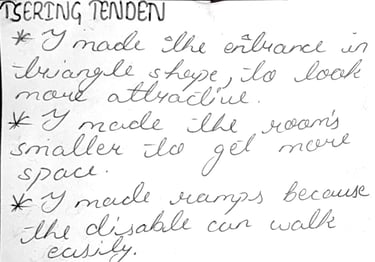 TSERING TENDEN
* I made the entrance in
triangle shape, to look
more attractive.
* I made the room's
smaller to get more
space.
* I made ramps because
the disable can walk
easily.